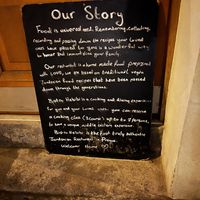 Our Story
Food is universal and Remembering, Collecting,
recording and passing down the recipes your loved
ones have passed to you is a wonderful way
to honor and commemorate your family.
Our restaurant is a home made food prepared
with love, we are based on traditional vegan
Jordanian food recipes that have been passed
down through the generations.
is a cooking and dining experience
for you and your loved ones you can reserve
a cooking class (3 course) up to 8 persons,
to have a unique middle eastern experience.
is the first truly authentic
Jordanian Restaurant in Prague.
Welcome Home